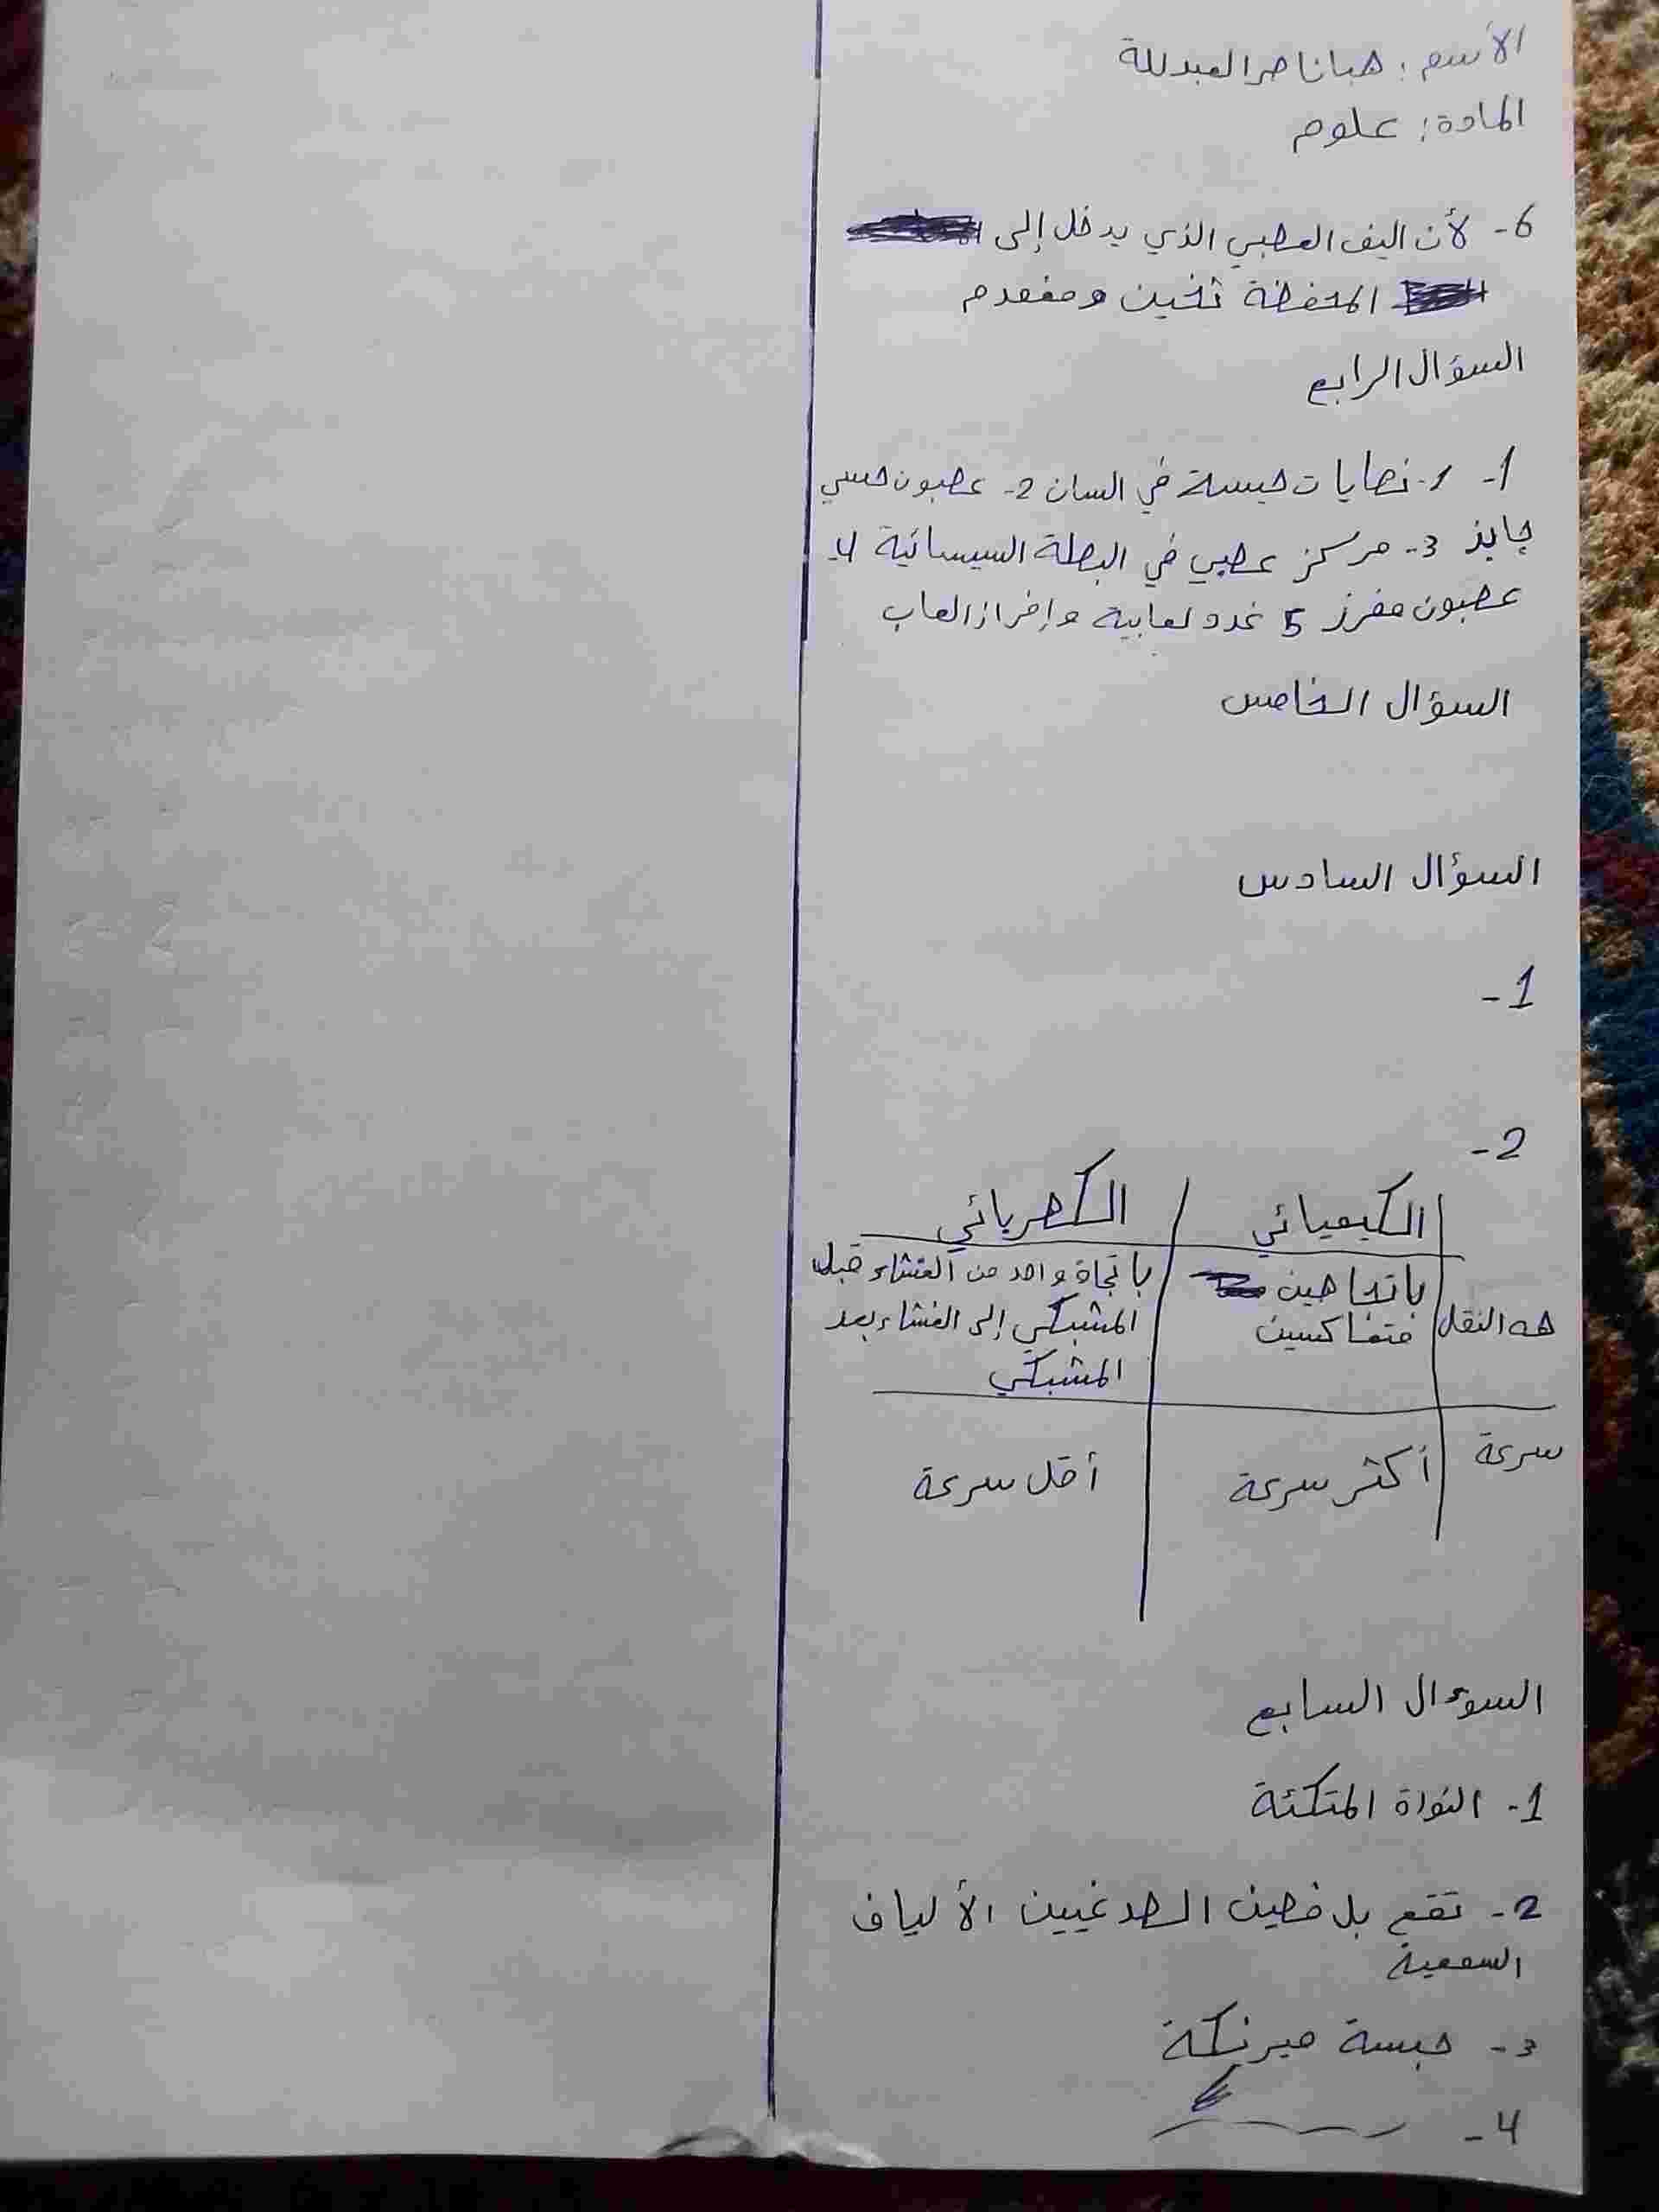 الأسم : هبا ناصر العبدلله
المادة : علوم
6- لأن اليف العصبي الذي يدخل إلى
المحفظة ثخين ومغمد
السؤال الرابع
1- 1- نهايات حبسة في السان 2- عصبون حسي
جابذ 3- مركز عصبي في البصلة السيسائية 4-
عصبون مفرز 5 غدد لعابية وإفراز العاب
السؤال الخامس
السؤال السادس
1-
2-
الكيميائي الكهربائي
هه النقل باتجاهين متعاكسين باتجاة واحد من الغشاء قبل
المشبكي إلى الغشاء بعد
المشبكي
سرعة أكثر سرعة أقل سرعة
السوءال السابع
1- النواة المتكئة
2- تقع بل فصين الصدغيين الألياف
السمعية
3- حبسة
4-